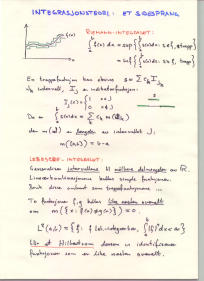 INTEGRASJONSTEORI: ET SIDESPRANG
f(x)
RIEMANN-INTEGRALET:
∫ f(x) dx = sup { ∫ s(x) dx : s ≤ f, s trapp }
= inf { ∫ s(x) dx : s ≥ f, trapp
En trappefunksjon kan skrives s = Σ c_k I_{J_k}
J_k intervall, I_J er indikatorfunksjonen:
I_J(x) = { 1 x∈J
0 x∉J
Da er ∫ s(x) dx = Σ c_k m(J_k)
der m(J) er lengden av intervallet J:
m((a,b)) = b-a
LEBESGUE-INTEGRALET:
Generaliser intervallene til målbare delmengder av ℝ.
Lineærkombinasjonene kalles simple funksjoner.
Bruk disse istedenfor trappefunksjonene ...
To funksjoner f, g kalles like nesten overalt
om m({x : f(x) ≠ g(x)}) = 0.
L²(a,b) = { f : f Leb. integrerbar, ∫ |f|² dx < ∞ }
blir et Hilbertrom dersom vi identifiserer
funksjoner som er like nesten overalt.